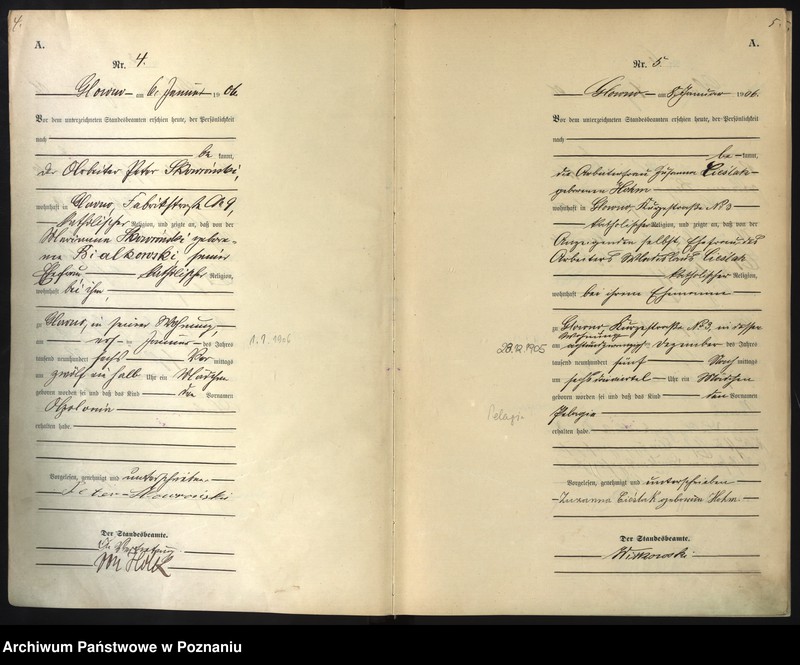 4.
A.
Nr. 4.
Glowno am 6. Januar 1906.
Vor dem unterzeichneten Standesbeamten erschien heute, der Persönlichkeit
nach
be kannt,
der Arbeiter Peter Skowroński,
wohnhaft in Glowno, Fabrikstraße № 9,
katholischer Religion, und zeigte an, daß von der
Marianna Skowroński gebore-
nen Bialkowski, seiner
Ehefrau katholischer Religion,
wohnhaft bei ihm,
zu Glowno, in seiner Wohnung,
am ersten Januar des Jahres
tausend neunhundert sechs Vor mittags
um zwölf ein halb Uhr ein Mädchen
geboren worden sei und daß das Kind den Vornamen
Apolonia
erhalten habe.
1.1.1906
Vorgelesen, genehmigt und unterschrieben
Peter Skowroński
Der Standesbeamte.
In Vertretung.
5.
A.
Nr. 5.
Glowno am 8. Januar 1906.
Vor dem unterzeichneten Standesbeamten erschien heute, der Persönlichkeit
nach
be kannt,
die Arbeiterfrau Zuzanna Cieślak
geborene Hohm
wohnhaft in Glowno, Kurzestraße № 3
katholischer Religion, und zeigte an, daß von der
Anzeigenden selbst, Ehefrau des
Arbeiters Wladislaus Cieślak
katholischer Religion,
wohnhaft bei ihrem Ehemanne
zu Glowno, Kurzestraße № 3, in dessen
Wohnung
am achtundzwanzigsten Dezember des Jahres
tausend neunhundert fünf Nach mittags
um sechs Uhr ein Mädchen
geboren worden sei und daß das Kind den Vornamen
Pelagia
erhalten habe.
28.12.1905
Pelagja
Vorgelesen, genehmigt und unterschrieben
Zuzanna Cieślak geborene Hohm
Der Standesbeamte.
Witkowski
Archiwum Państwowe w Poznaniu